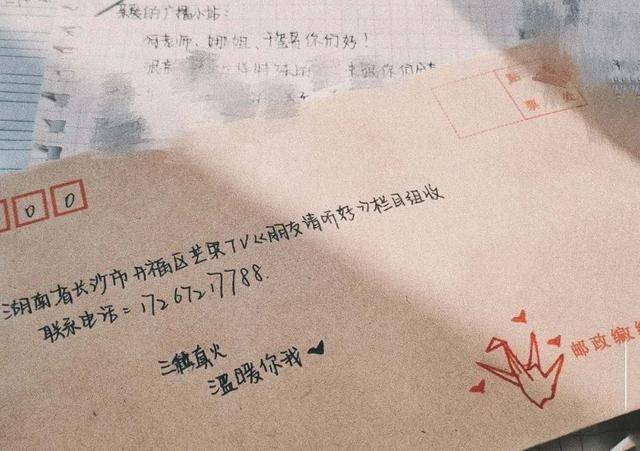 亲爱的广播小站:
何老师、娜姐、千玺哥你们好!
你们
贴
票 处
0 0
湖南省长沙市开福区芒果TV《朋友请听好》栏目组收
联系电话:17267217788.
三昧真火
温暖你我♥
邮政编